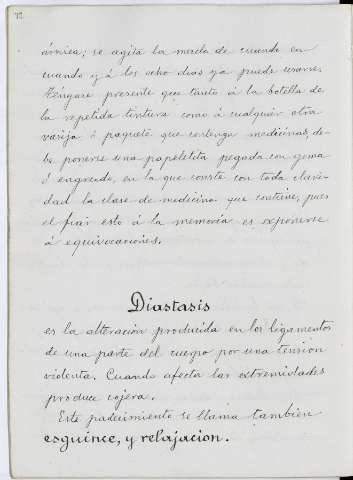 árnica; se agita la mezcla de cuando en
cuando y á los ocho dias ya puede usarse.
Téngase presente que tanto á la botella de
la repetida tintura como á cualquier otra
vasija ó paquete que contenga medicinas, de-
be ponerse una papeletita pegada con goma
ó engrudo, en la que conste con toda clari-
dad la clase de medicina que contiene, pues
el fiar esto á la memoria es exponerse
á equivocaciones.
Diastasis
es la alteración producida en los ligamentos
de una parte del cuerpo por una tension
violenta. Cuando afecta las extremidades
produce cojera.
Este padecimiento se llama tambien
esguince, y relajacion.